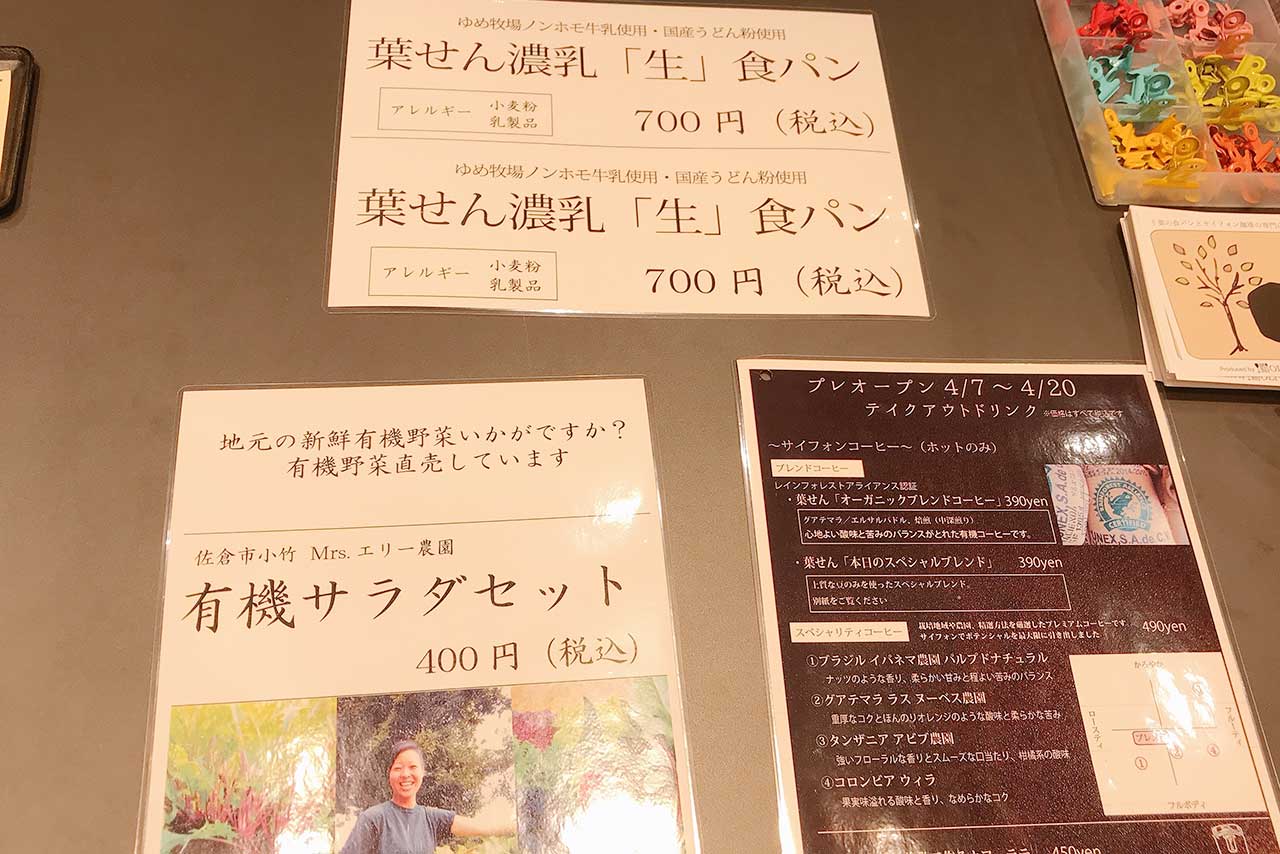 ゆめ牧場ノンホモ牛乳使用・国産うどん粉使用
葉せん濃乳「生」食パン
アレルギー 小麦粉
乳製品
700円(税込)
ゆめ牧場ノンホモ牛乳使用・国産うどん粉使用
葉せん濃乳「生」食パン
アレルギー 小麦粉
乳製品
700円(税込)
地元の新鮮有機野菜いかがですか?
有機野菜直売しています
佐倉市小竹 Mrs.エリー農園
有機サラダセット
400円(税込)
プレオープン 4/7～4/20
テイクアウトドリンク ※価格はすべて税込です
～サイフォンコーヒー～(ホットのみ)
ブレンドコーヒー
レインフォレストアライアンス認証
・葉せん「オーガニックブレンドコーヒー」390yen
グアテマラ/エルサルバドル、焙煎(中深煎り)
心地よい酸味と苦みのバランスがとれた有機コーヒーです。
・葉せん「本日のスペシャルブレンド」 390yen
上質な豆のみを使ったスペシャルブレンド。
別紙をご覧ください
スペシャリティコーヒー
栽培地域や農園、精選方法を厳選したプレミアムコーヒーです。
サイフォンでポテンシャルを最大限に引き出しました
490yen
①ブラジル イパネマ農園 パルプドナチュラル
ナッツのような香り、柔らかい甘みと程よい苦みのバランス
②グアテマラ ラス ヌーベス農園
重厚なコクとほんのりオレンジのような酸味と柔らかな苦み
③タンザニア アビブ農園
強いフローラルな香りとスムーズな口当たり、柑橘系の酸味
④コロンビア ウィラ
果実味溢れる酸味と香り、なめらかなコク
かろやか
ロースティ
フルーティ
ブレンド
①
②
③
④
フルボディ
450yen
CERTIFIED
Produced by